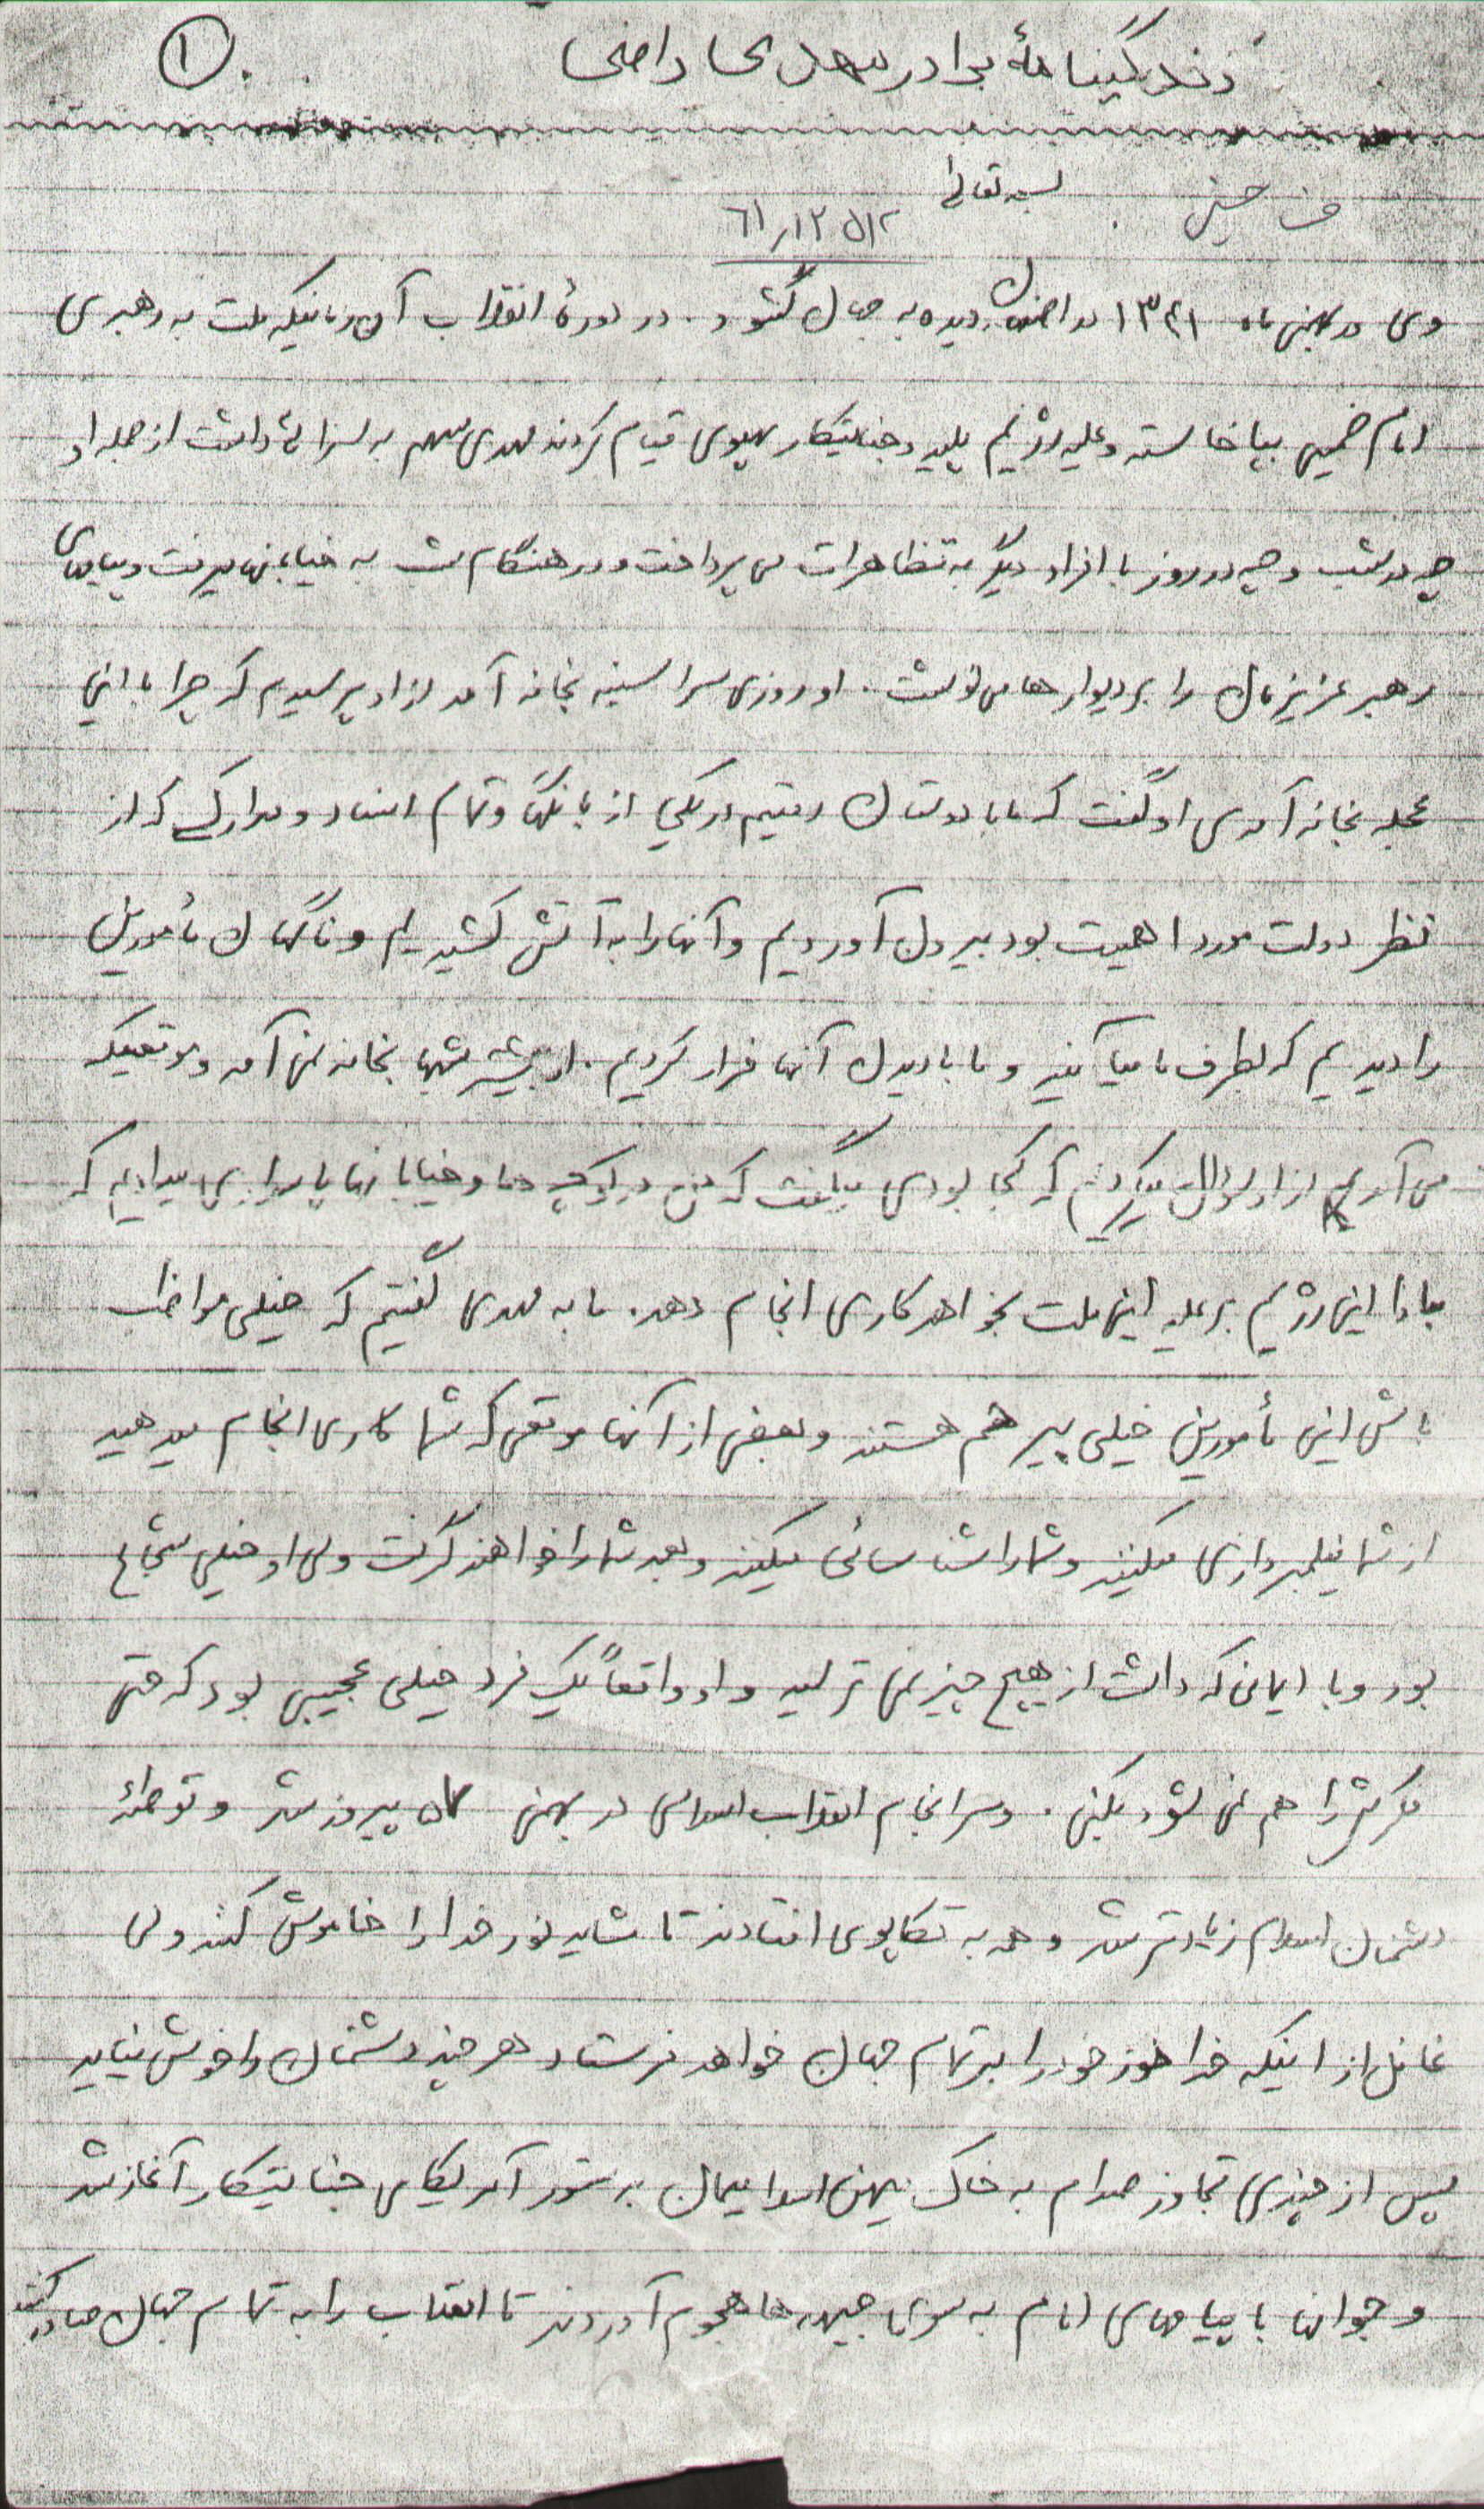 زندگینامهٔ برادر مهدی
۱
بسمه تعالی
وی در بهمن ماه ۱۳۴۱ در دیده به جهان گشود. در دورهٔ انقلاب آن زمانیکه ملت به رهبری
امام خمینی بپا خاسته و علیه رژیم پلید و جنایتکار پهلوی قیام کردند مهدی سهم به سزائی داشت از جمله او
چه در شب و چه در روز با افراد دیگر به تظاهرات می پرداخت و در هنگام شب به خیابانها میرفت و پیامهای
رهبر عزیزمان را بر دیوارها می نوشت. او روزی سراسیمه بخانه آمد از او پرسیدیم که چرا با این
عجله بخانه آمدی او گفت که ما با دوستان رفتیم در یکی از بانکها و تمام اسناد و مدارکی که از
نظر دولت مورد اهمیت بود بیرون آوردیم و آنها را به آتش کشیدیم و ناگهان مأمورین
را دیدیم که بطرف ما میآیند و ما با دیدن آنها فرار کردیم. او بیشتر شبها بخانه نمی آمد و موقعیکه
می آمد از او سوال میکردیم که کجا بودی میگفت که من در کوچه ها و خیابانها پاسداری میدادیم که
مبادا این رژیم بر علیه این ملت بخواهد کاری انجام دهد. ما به مهدی گفتیم که خیلی مواظب
باش این مأمورین خیلی هستند و بعضی از آنها موقعی که شما کاری انجام میدهید
از شما فیلمبرداری میکنند و شما را شناسائی میکنند و بعد شما را خواهند گرفت ولی او خیلی شجاع
بود و با ایمانی که داشت از هیچ چیز نمی ترسید و او واقعاً یک فرد خیلی عجیبی بود که حتی
فکرش را هم نمی شود بکنی. و سرانجام انقلاب اسلامی در بهمن ۵۷ پیروز شد و توطئه
دشمنان اسلام زیادتر شد و همه به تکاپوی افتادند تا شاید نور خدا را خاموش کنند ولی
غافل از اینکه خدا نور خود را بر تمام جهان خواهد فرستاد هر چند دشمنان را خوش نیاید
پس از چندی تجاوز صدام به خاک میهن اسلامیمان به دستور آمریکای جنایتکار آغاز شد
و جوانها با پیامهای امام به سوی جبهه ها هجوم آوردند تا انقلاب را به تمام جهان صادر کنند